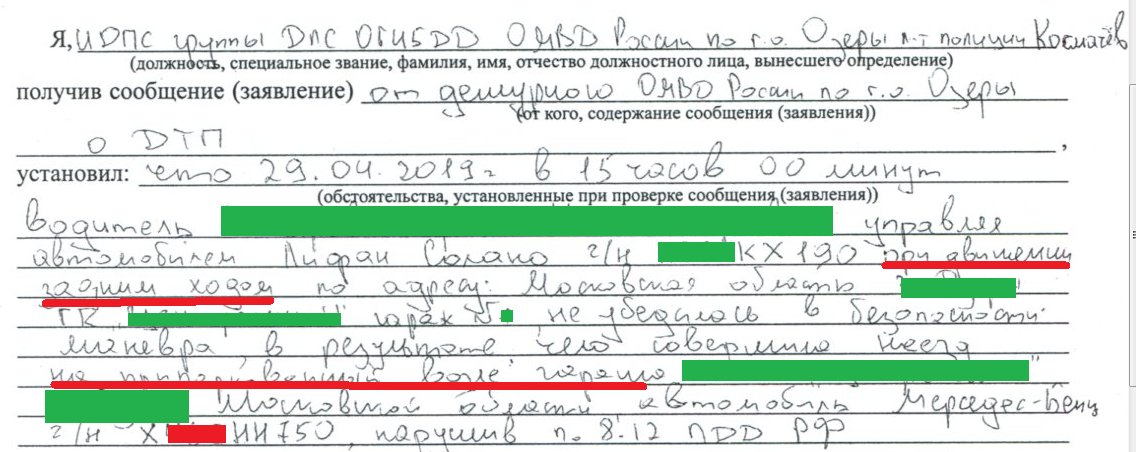 Я, ИДПС группы ДПС ОГИБДД ОМВД России по г.о. Озеры л-т полиции Космачёв
(должность, специальное звание, фамилия, имя, отчество должностного лица, вынесшего определение)
получив сообщение (заявление) от дежурного ОМВД России по г.о. Озеры
(от кого, содержание сообщения (заявления))
о ДТП ,
установил: что 29.04.2019г в 15 часов 00 минут
(обстоятельства, установленные при проверке сообщения (заявления))
водитель управляя
автомобилем Лифан Солано г/н КХ190 при движении
задним ходом по адресу: Московская область
ГК " " гараж № не убедилась в безопасности
маневра, в результате чего совершила наезд
на припаркованный возле гаража "
Московской области автомобиль Мерседес-Бенц
г/н Х НН750, нарушив п. 8.12 ПДД РФ